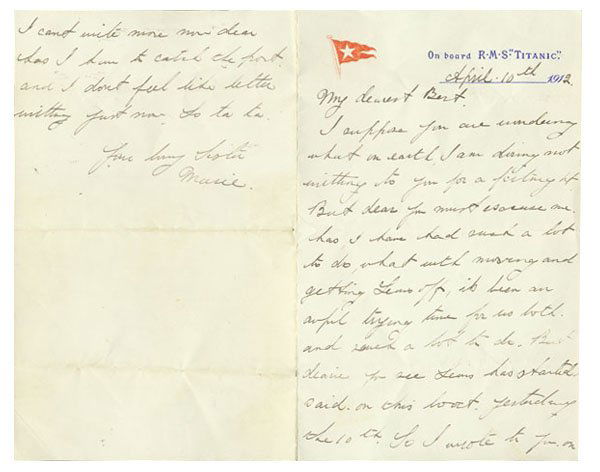 On board R·M·S "TITANIC".
April 10th 1912
My dearest Bert.
I suppose you are wondering
what on earth I am doing not
writting to you for a
But dear you must me.
has I have had such a lot
to do what with moving and
getting Lewis off, its been an
awful trying time for us both.
and such a lot to do. But
dearie you see Lewis has started
said. on this boat. yesterday
the 10th. So I wrote to you on
I cant write more now dear
has I have to catch the post.
and I dont feel like letter
writting just now. So ta ta.
Your loving Sister